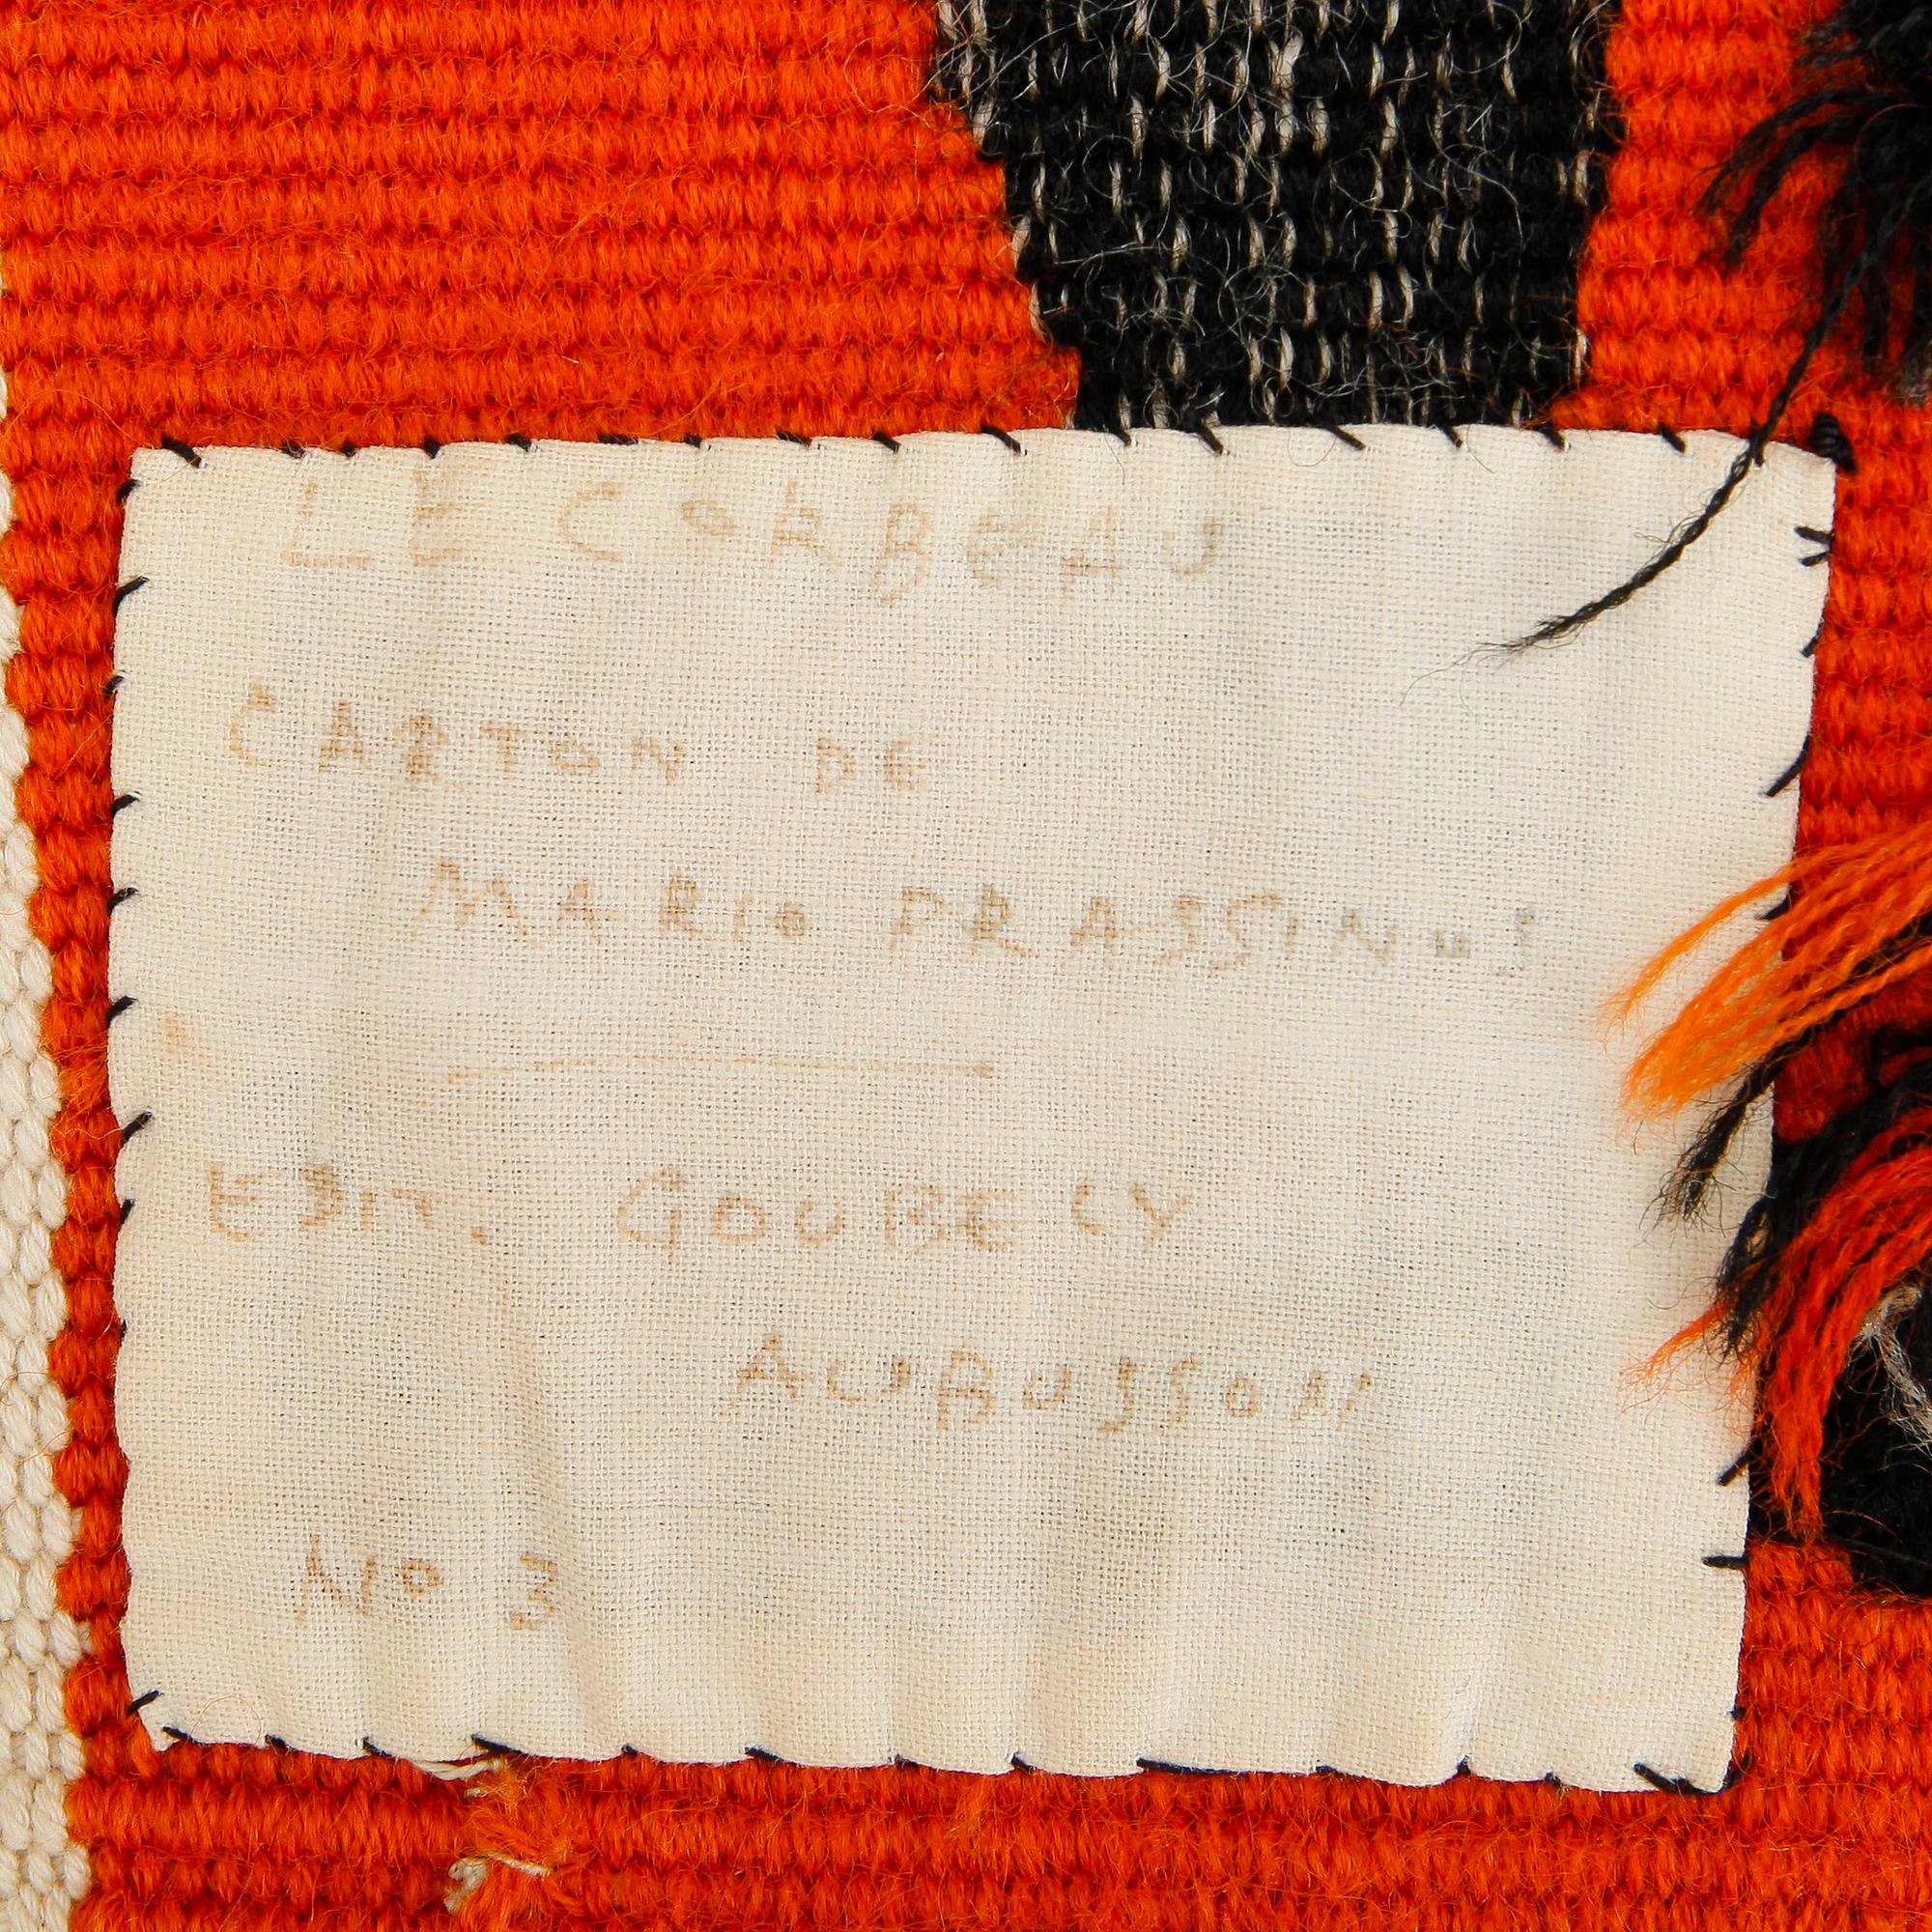 LE CORBEAU
CARTON DE
MARIO PRASSINOS
EDIT. GOUBELY
AUBUSSON
No 3